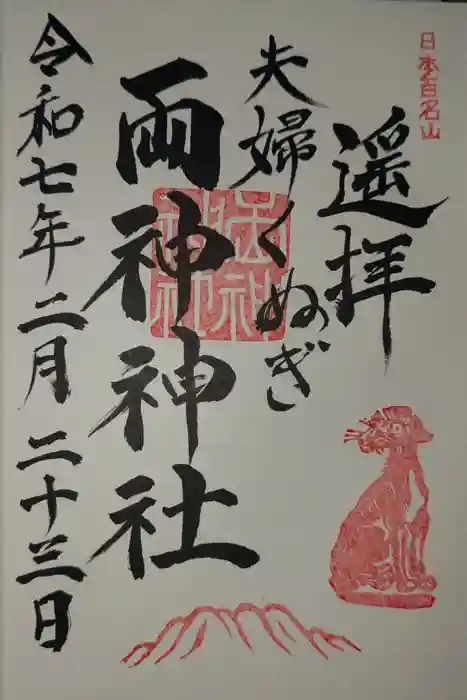 日本百名山
遥拝
夫婦くぬぎ
両神神社
令和七年二月二十三日